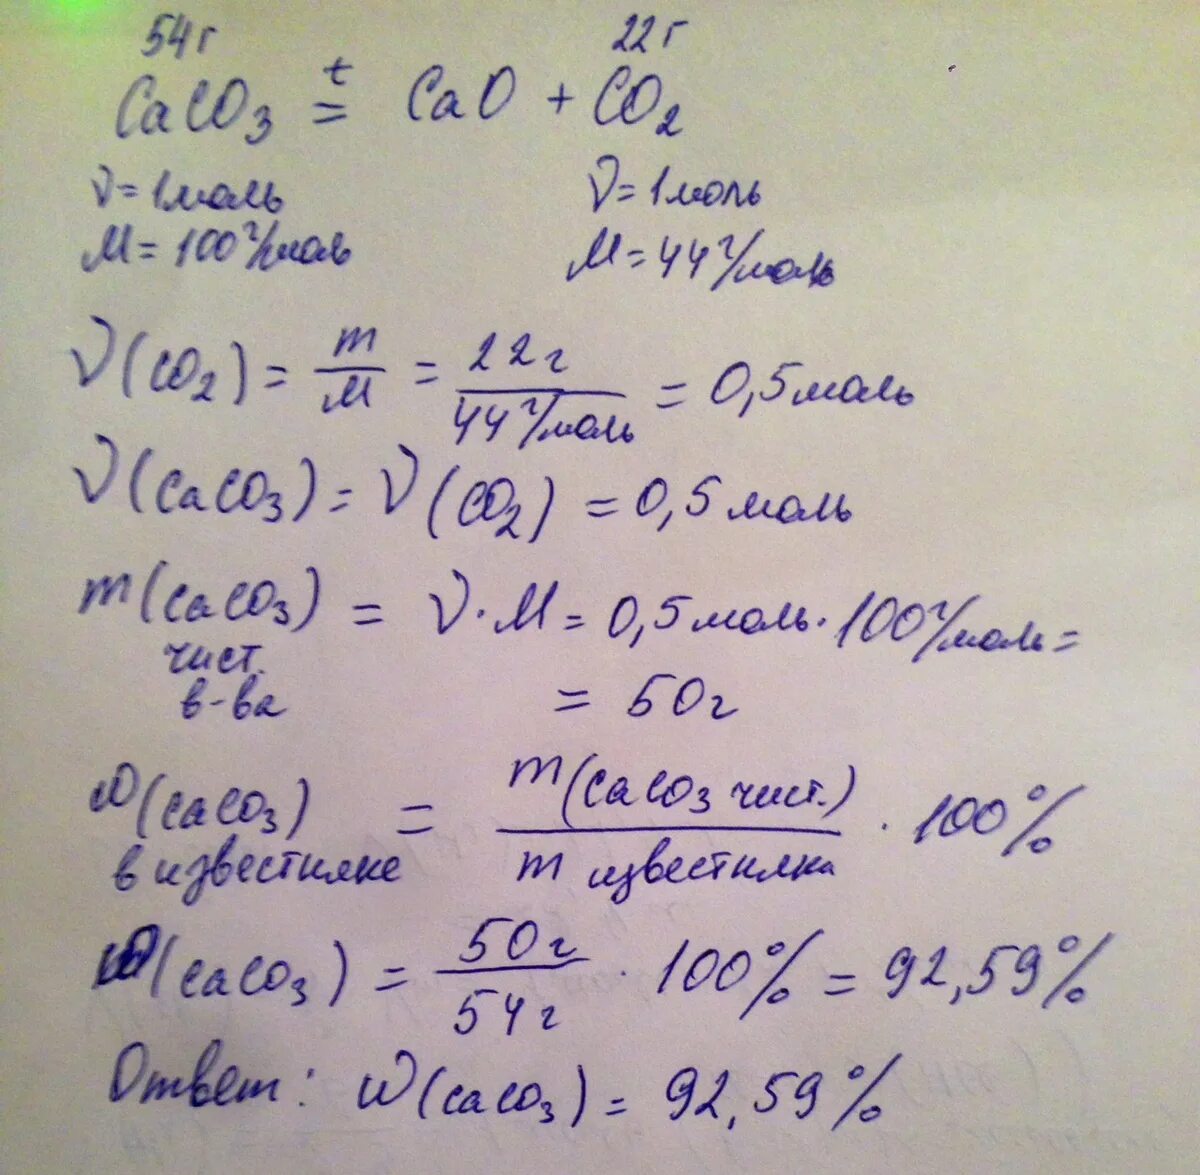 54г 22г
CaCO3 t = CaO + CO2
ν=1моль ν=1моль
M=100г/моль M=44г/моль
ν(CO2) = m/M = 22г/44г/моль = 0,5моль
ν(CaCO3) = ν(CO2) = 0,5моль
m(CaCO3) = ν·M = 0,5моль·100г/моль =
чист.
в-ва = 50г
ω(CaCO3) = m(CaCO3 чист.)/m известняка · 100%
в известняке
ω(CaCO3) = 50г/54г · 100% = 92,59%
Ответ: ω(CaCO3) = 92,59%